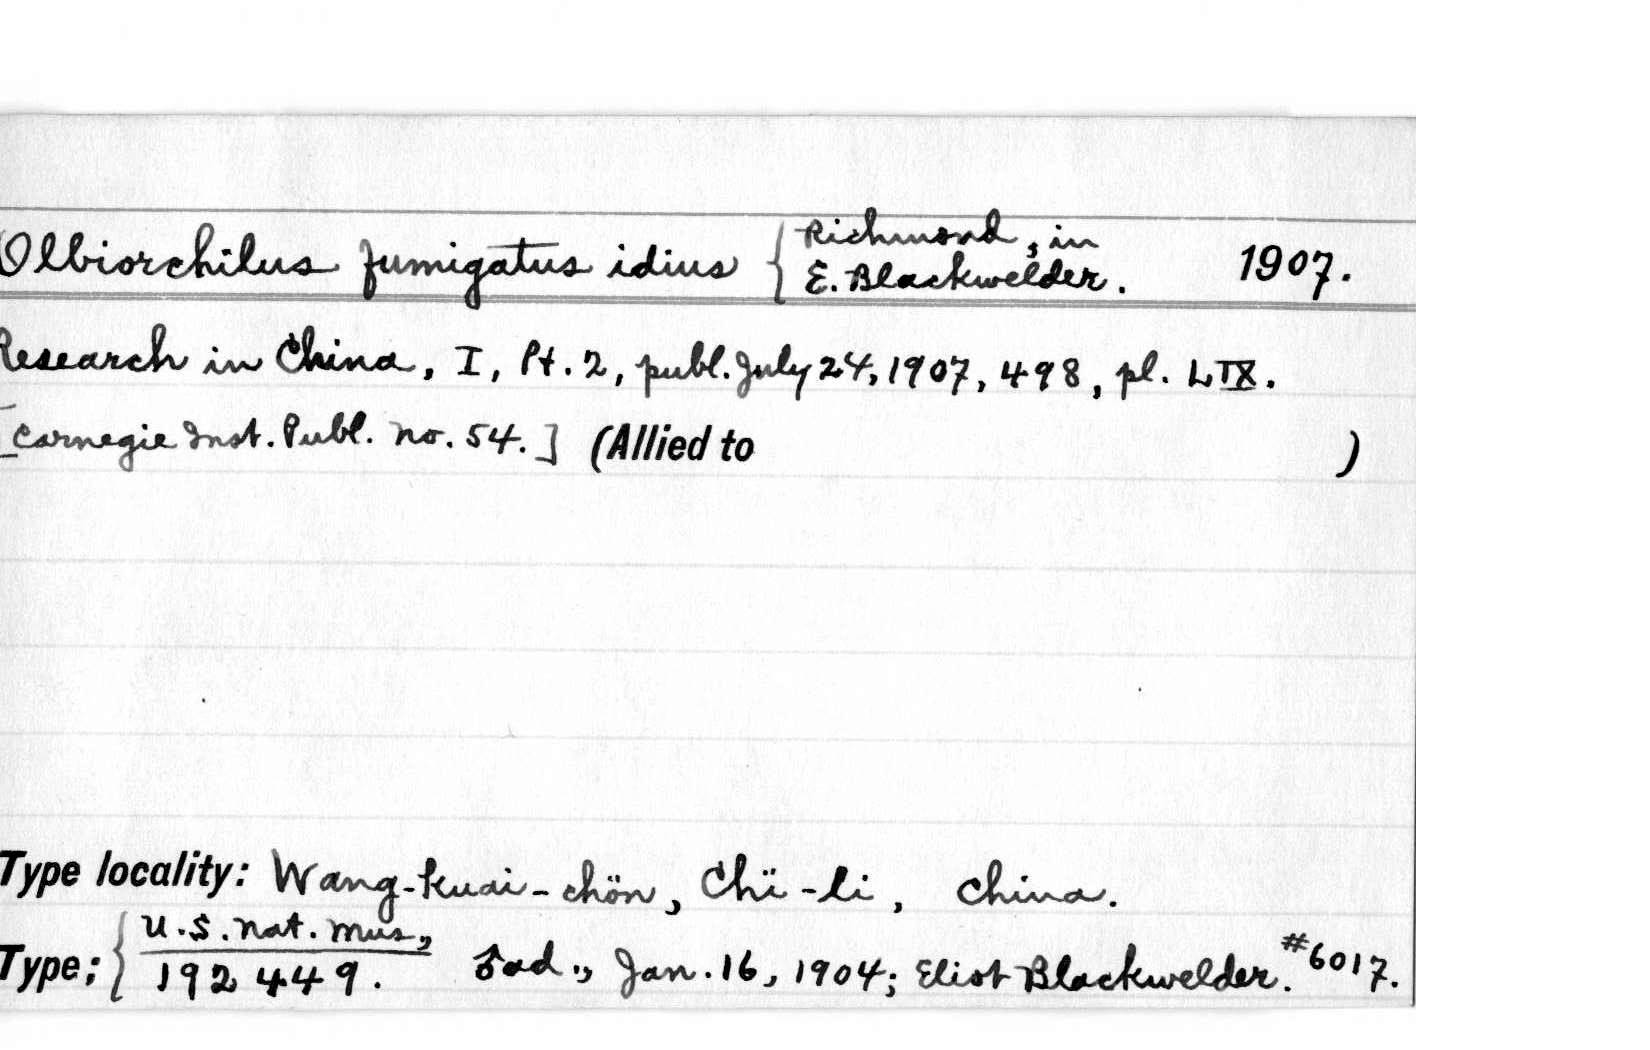 Olbiorchilus fumigatus idius { Richmond, in E. Blackwelder. 1907.
Research in China, I, Pt. 2, publ. July 24, 1907, 498, pl. LIX.
[Carnegie Inst. Publ. no. 54.] (Allied to )
Type locality: Wang-kuai-chön, Chï-li, China.
Type; { U.S. Nat. Mus., 192449. ♂ ad., Jan. 16, 1904; Eliot Blackwelder. #6017.